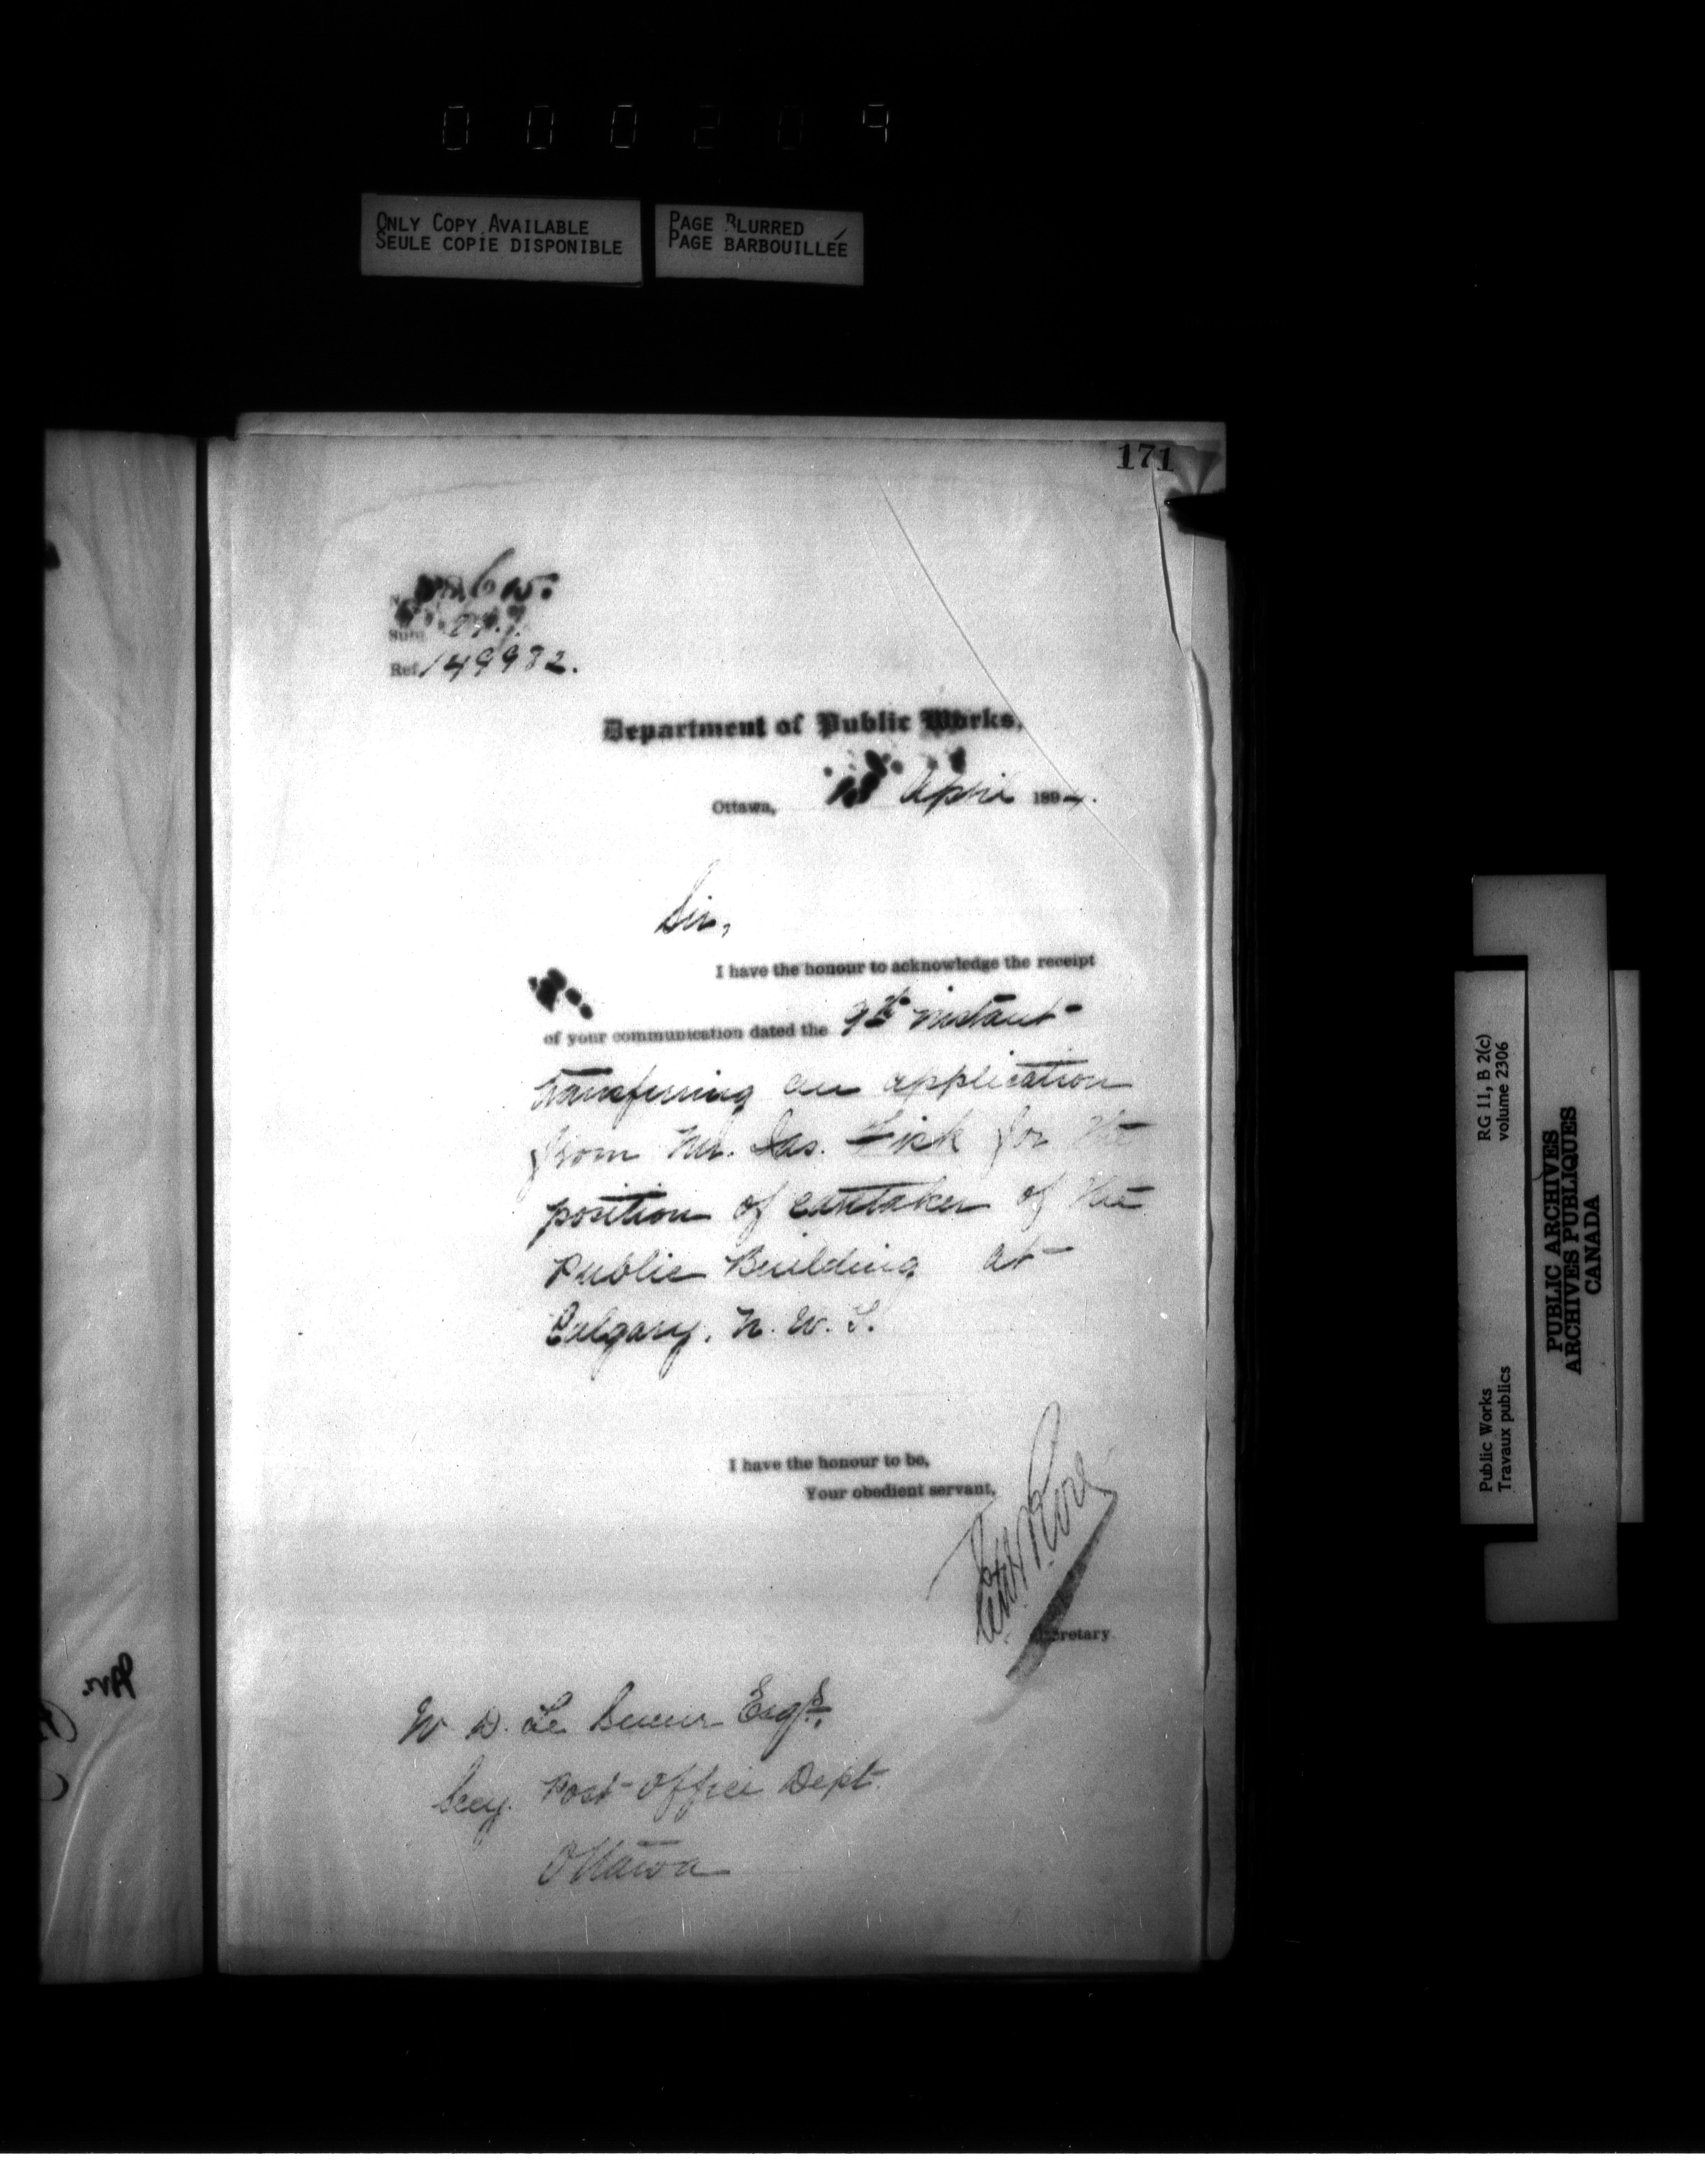 000209
ONLY COPY AVAILABLE
SEULE COPIE DISPONIBLE
PAGE BLURRED
PAGE BARBOUILLÉE
171
No
Subj.
Ref. 149982.
Department of Public Works,
Ottawa, April 189
Sir,
I have the honour to acknowledge the receipt
of your communication dated the 9th instant
transferring an application
from Mr. Jas. Fisk for the
position of caretaker of the
Public Building at
Calgary. N. W. T.
I have the honour to be,
Your obedient servant,
Secretary.
W. D. Le Sueur Esqre.,
Secy. Post Office Dept.
Ottawa
RG 11, B 2(c)
volume 2306
Public Works
Travaux publics
PUBLIC ARCHIVES
ARCHIVES PUBLIQUES
CANADA